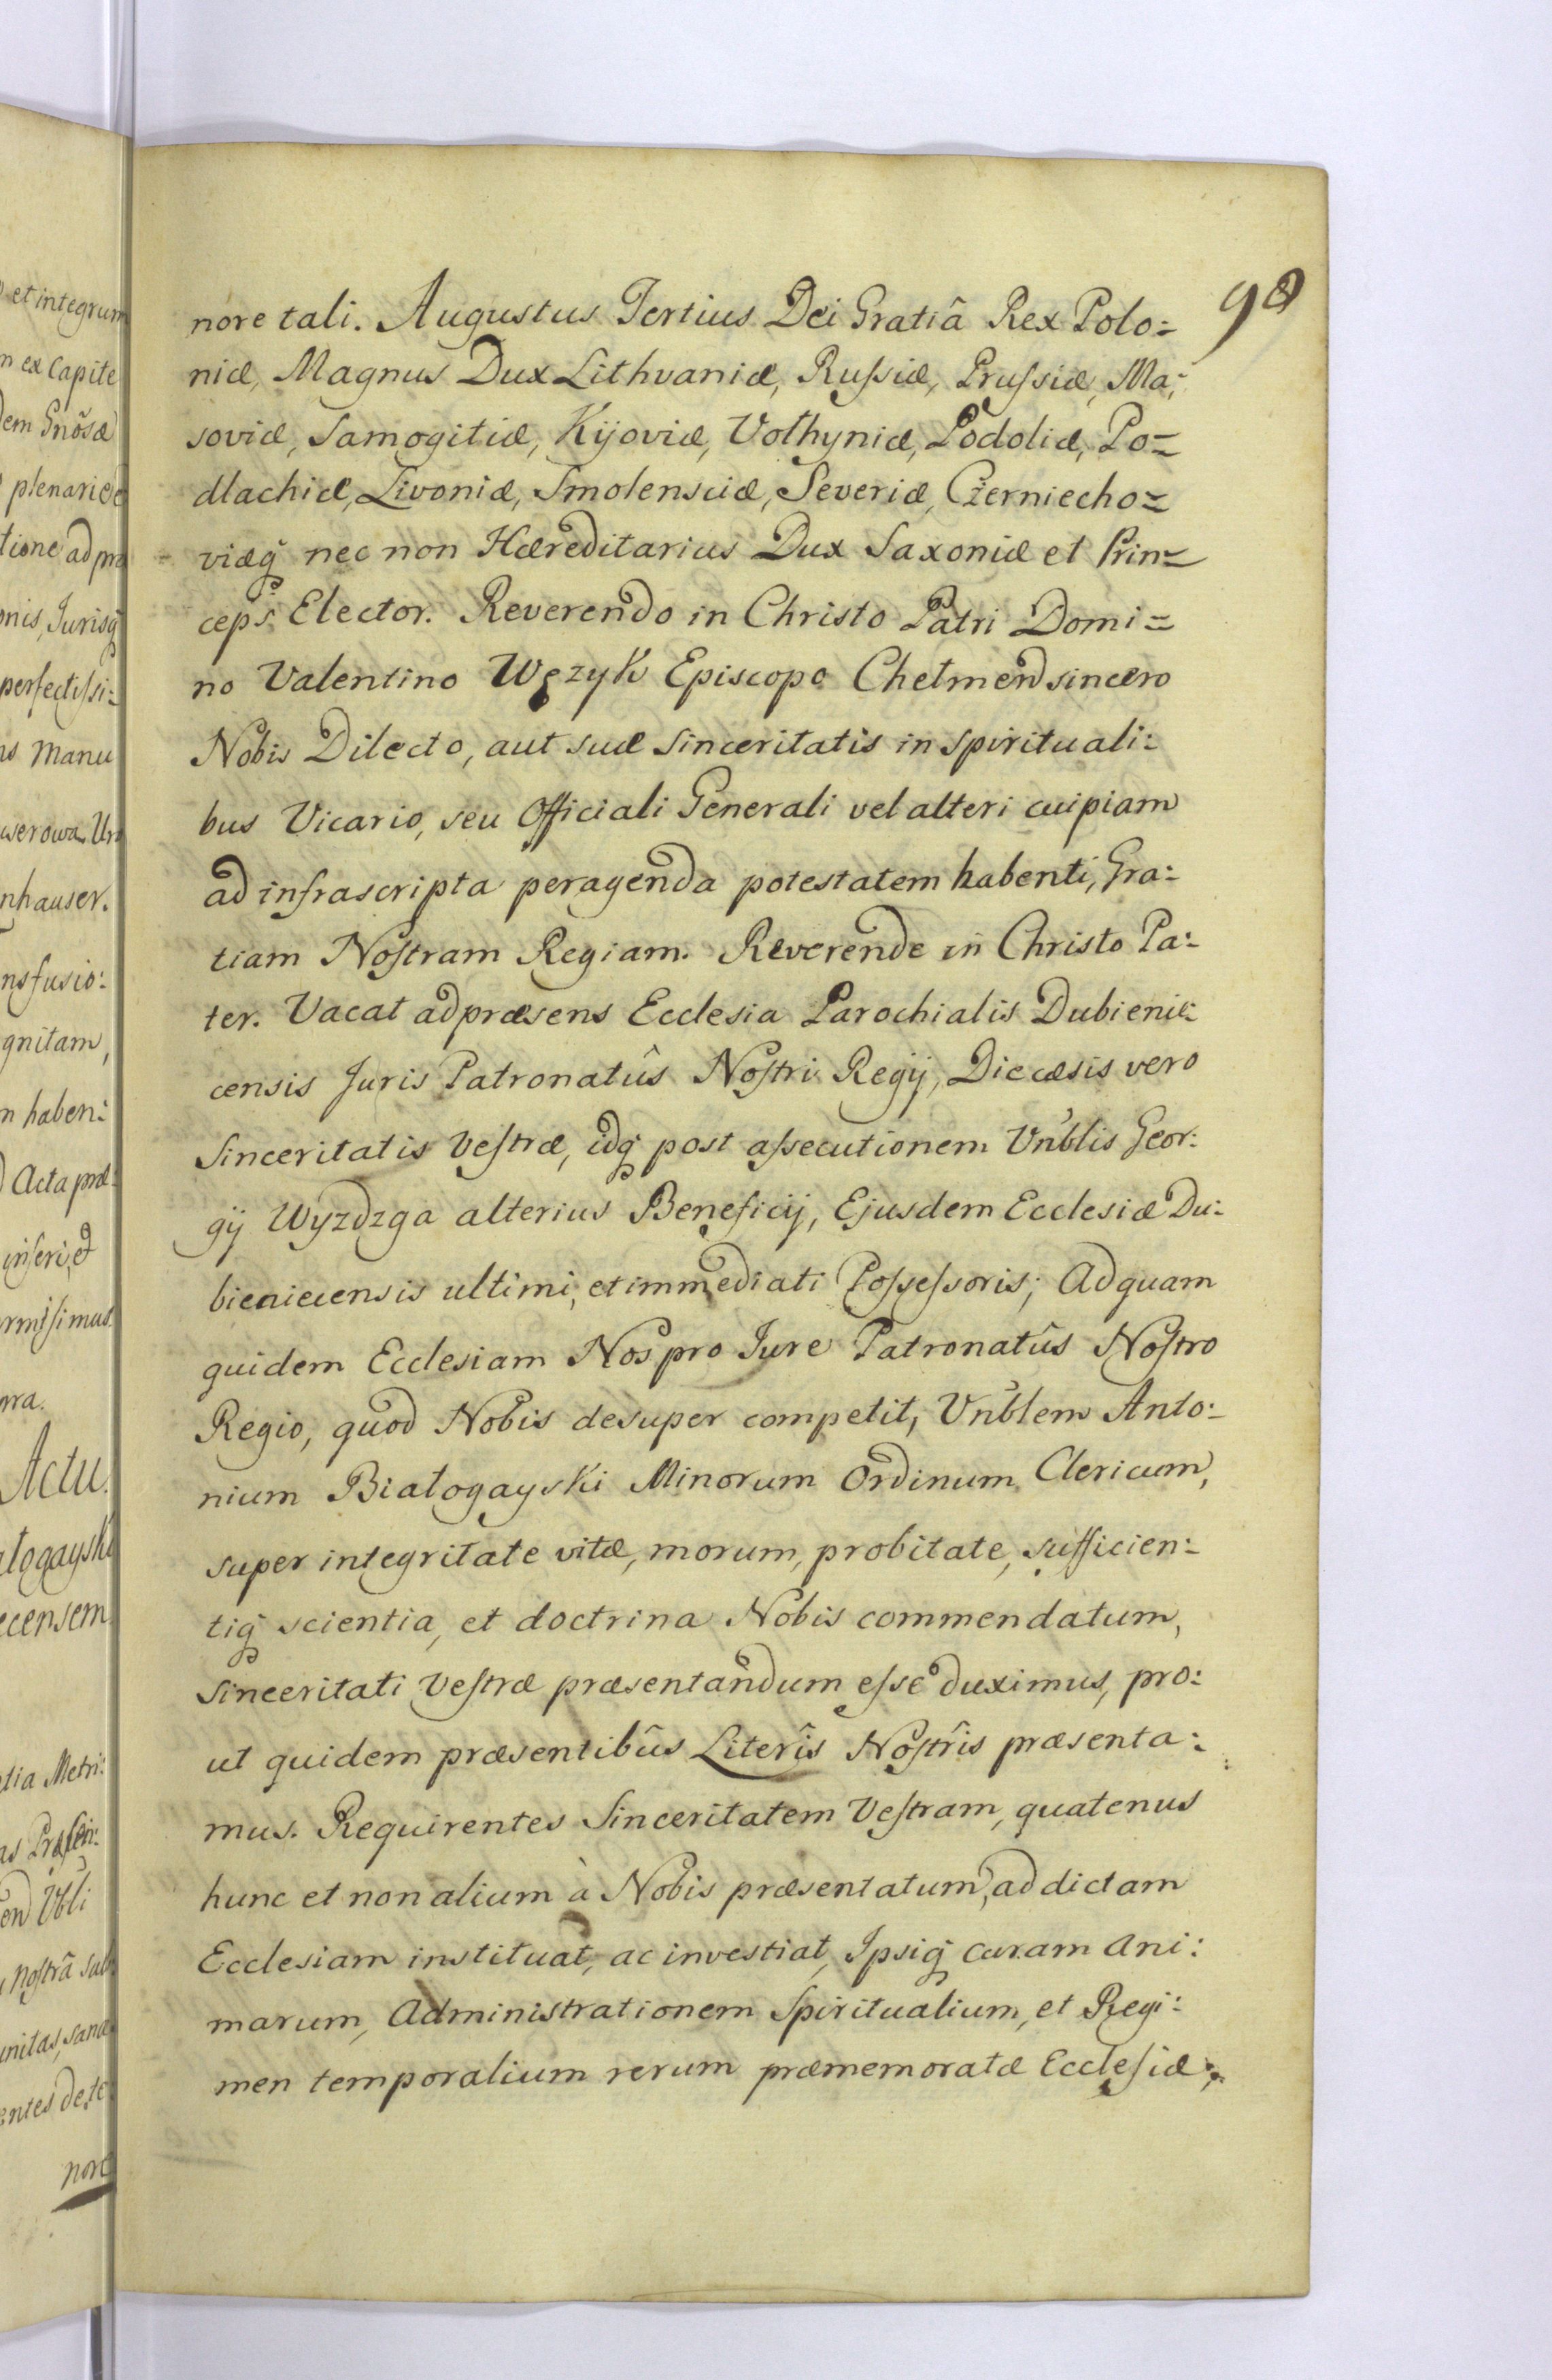 98
nore tali. Augustus Tertius Dei Gratiâ Rex Polo=
niæ, Magnus Dux Lithvaniæ, Ruſsiæ, Pruſsiæ, Ma=
soviæ, Samogitiæ, Kijoviæ, Vołhyniæ, Podoliæ, Po=
dlachiæ, Livoniæ, Smolensciæ, Severiæ, Czerniecho=
viæq̃ nec non Hæreditarius Dux Saxoniæ et Prin=
ceps Elector. Reverendo in Christo Patri Domi=
no Valentino Węzyk Episcopo Chełmen sincero
Nobis Dilecto, aut suæ Sinceritatis in Spirituali:
bus Vicario, seu Officiali Generali vel alteri cuipiam
ad infrascripta peragenda potestatem habenti, Gra:
tiam Noſtram Regiam. Reverende in Christo Pa:
ter. Vacat ad præsens Ecclesia Parochialis Dubienie:
censis Juris Patronatûs Noſtri Regij, Diecæsis vero
Sinceritatis Veſtræ, idq̃ post aſsecutionem Vñblis Geor:
gij Wyzdzga alterius Beneficij, Ejusdem Ecclesiæ Du:
bieniecensis ultimi, et immediati Poſseſsoris; Ad quam
quidem Ecclesiam Nos pro Jure Patronatûs Noſtro
Regio, quod Nobis desuper competit, Vñblem Anto:
nium Białogayski Minorum Ordinum Clericum,
super integritate vitæ, morum, probitate, sufficien:
tiq̃ scientia, et doctrina Nobis commendatum,
Sinceritati Veſtræ præsentandum eſse duximus, pro:
ut quidem præsentibûs Literîs Noſtrîs præsenta:
mus. Requirentes Sinceritatem Veſtram, quatenus
hunc et non alium à Nobis præsentatum, ad dictam
Ecclesiam instituat, ac investiat, Ipsiq̃ curam Ani:
marum, Administrationem Spiritualium, et Regi:
men temporalium rerum præmemoratæ Eccleſiæ,